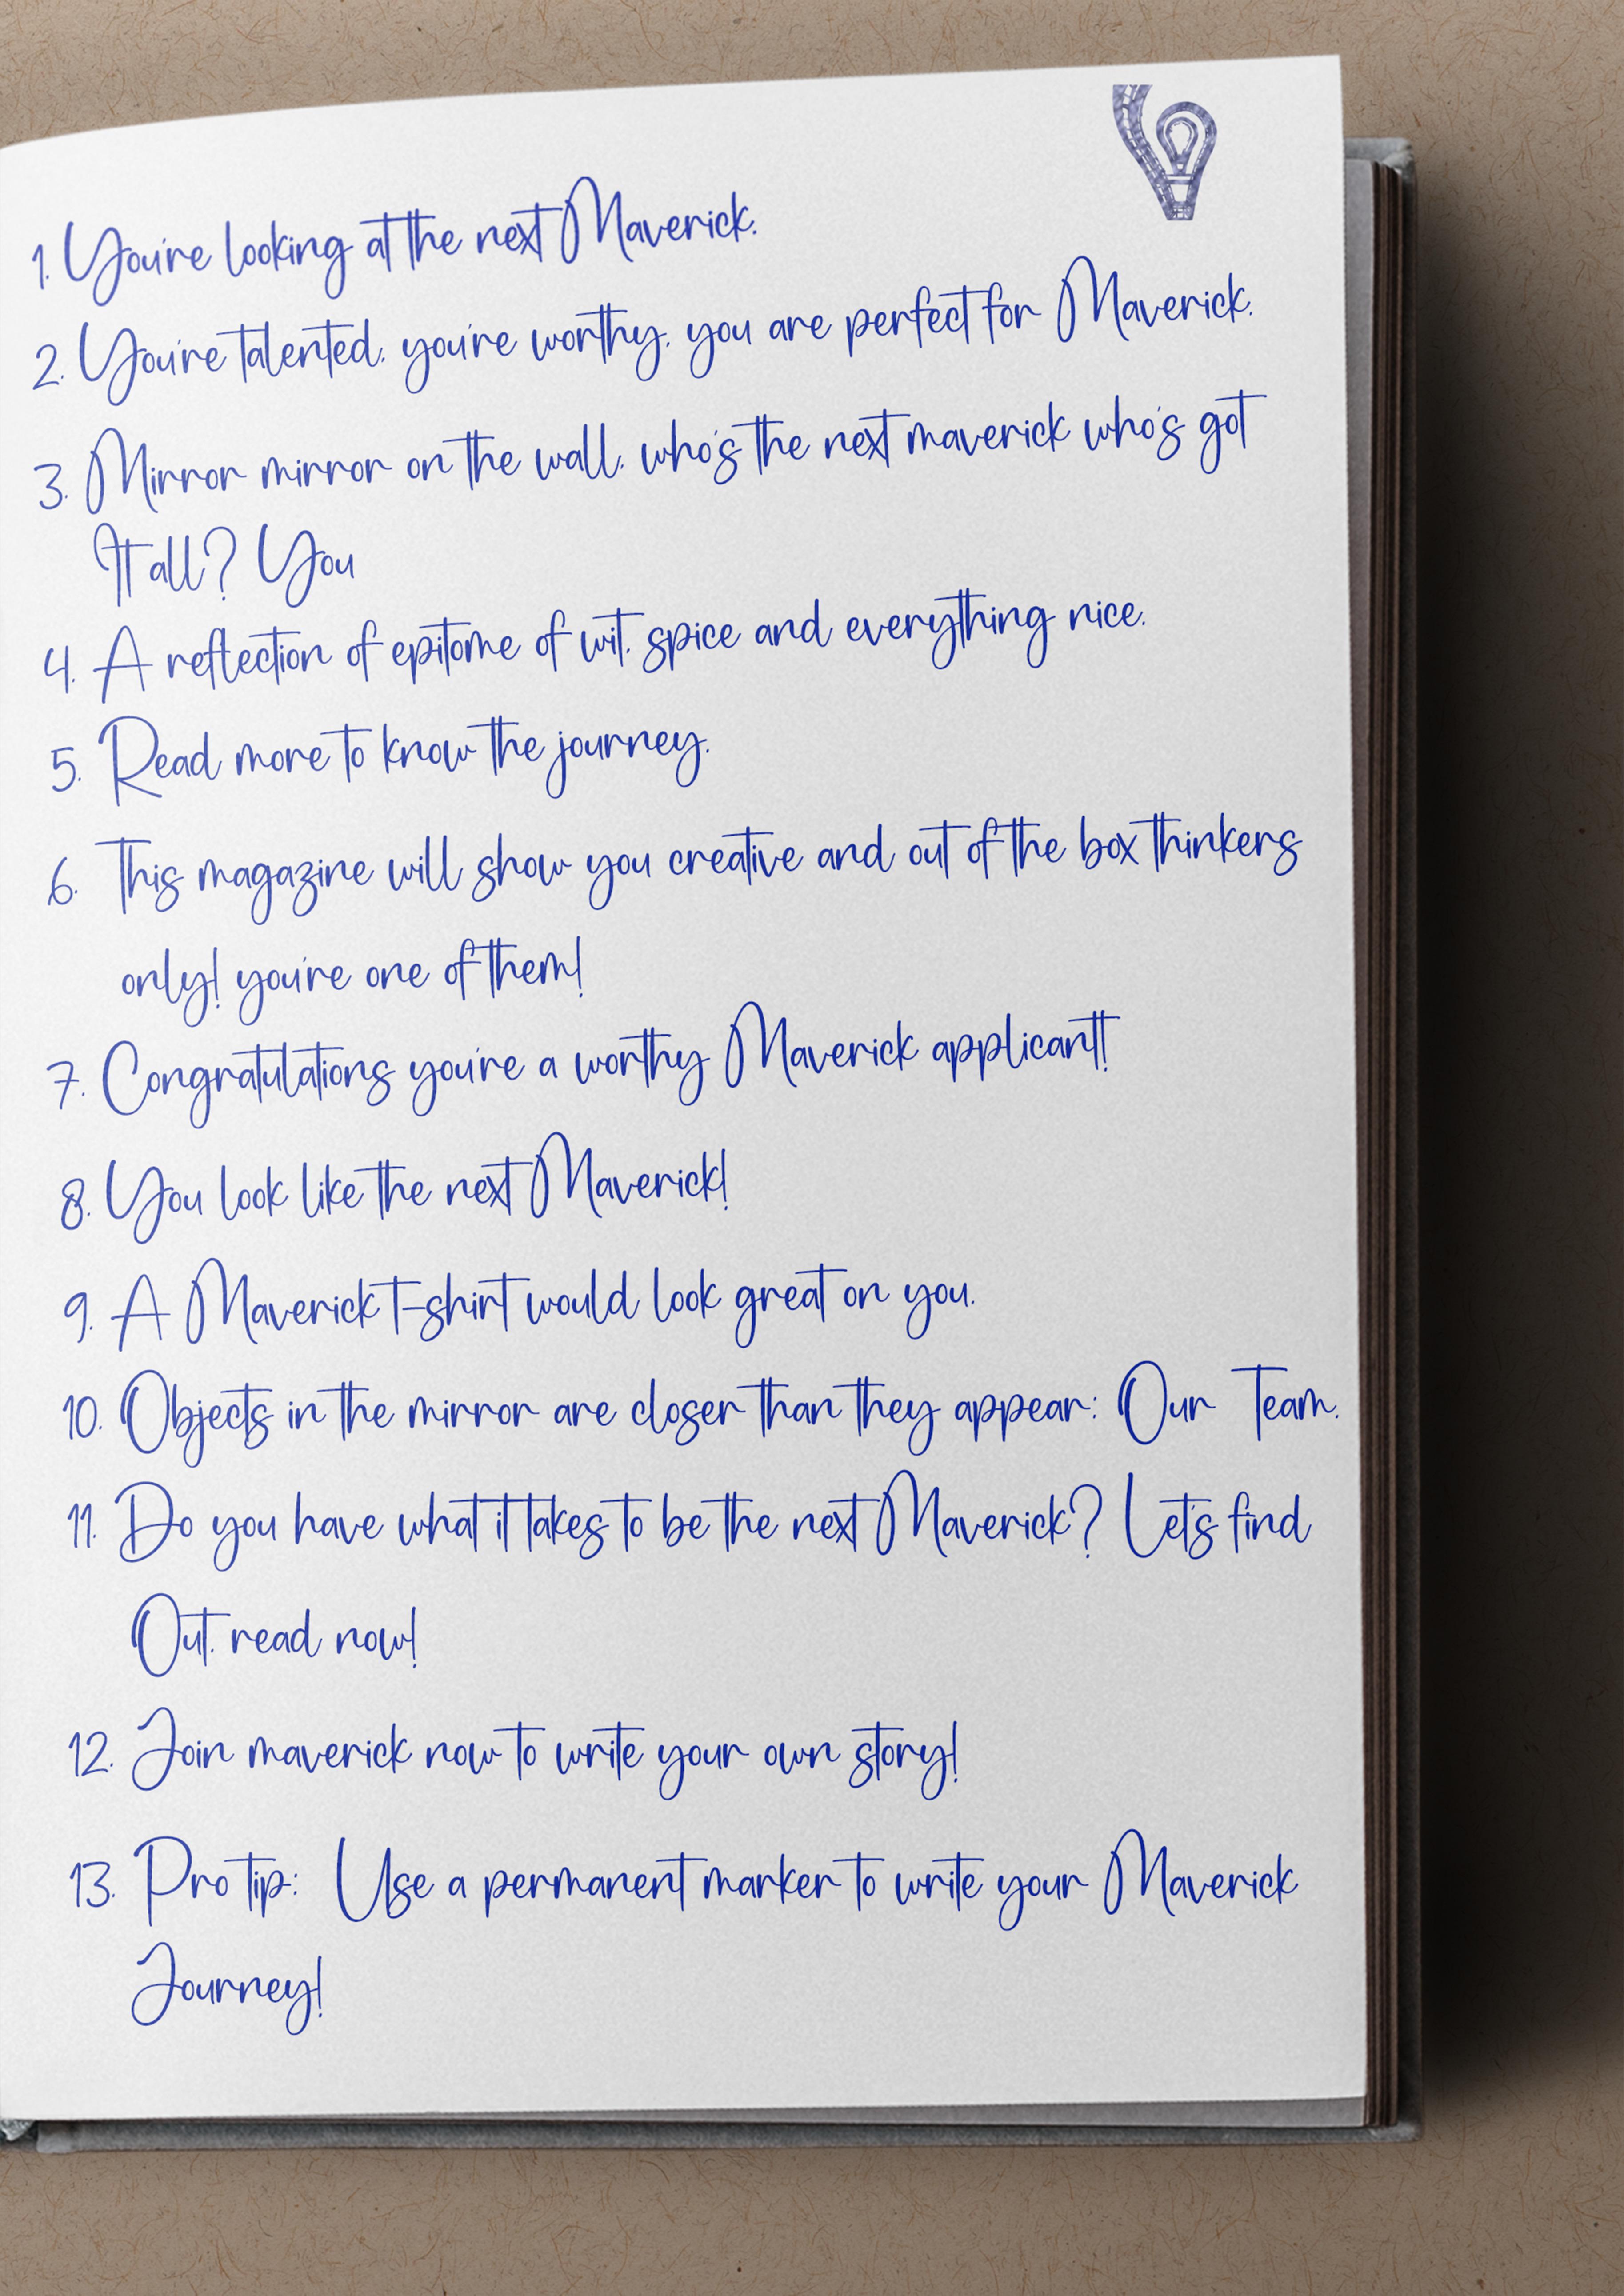 1. You're looking at the next Maverick.
2. You're talented, you're worthy, you are perfect for Maverick.
3. Mirror mirror on the wall, who's the next maverick who's got
It all? You
4. A reflection of epitome of wit, spice and everything nice.
5. Read more to know the journey.
6. This magazine will show you creative and out of the box thinkers
only! you're one of them!
7. Congratulations you're a worthy Maverick applicant!
8. You look like the next Maverick!
9. A Maverick T-shirt would look great on you.
10. Objects in the mirror are closer than they appear: Our Team.
11. Do you have what it takes to be the next Maverick? Let's find
Out, read now!
12. Join maverick now to write your own story!
13. Pro tip: Use a permanent marker to write your Maverick
Journey!